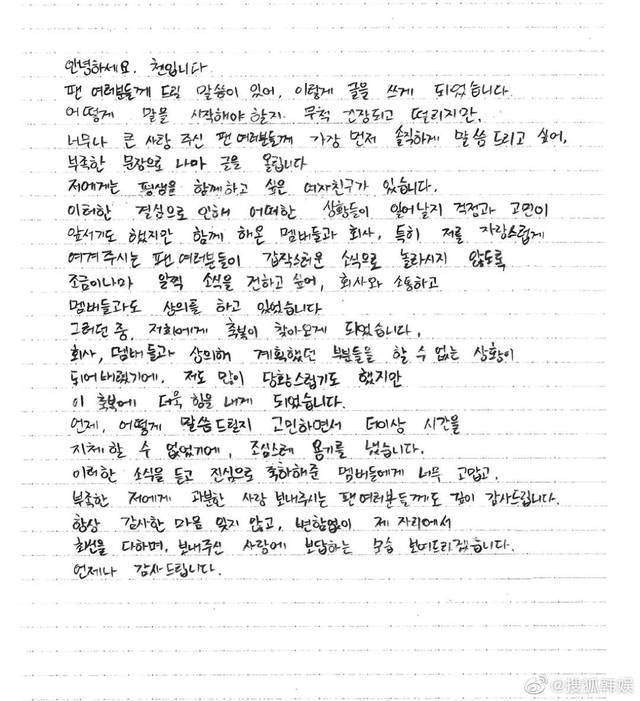 안녕하세요. 첸입니다.
팬 여러분들께 드릴 말씀이 있어, 이렇게 글을 쓰게 되었습니다.
어떻게 말을 시작해야 할지 무척 긴장되고 떨리지만,
너무나 큰 사랑 주신 팬 여러분들께 가장 먼저 솔직하게 말씀드리고 싶어,
부족한 문장으로나마 글을 올립니다
저에게는 평생을 함께하고 싶은 여자친구가 있습니다.
이러한 결심으로 인해 어떠한 상황들이 일어날지 걱정과 고민이
앞서기도 했지만 함께 해온 멤버들과 회사, 특히 저를 자랑스럽게
여겨주시는 팬 여러분들이 갑작스러운 소식으로 놀라시지 않도록
조금이나마 일찍 소식을 전하고 싶어, 회사와 소통하고
멤버들과도 상의를 하고 있었습니다
그러던 중, 저희에게 축복이 찾아오게 되었습니다.
회사, 멤버들과 상의해 계획했던 부분들을 할 수 없는 상황이
되어버렸기에. 저도 많이 당황스럽기도 했지만
이 축복에 더욱 힘을 내게 되었습니다.
언제, 어떻게 말씀드릴지 고민하면서 더이상 시간을
지체할 수 없었기에, 조심스레 용기를 냈습니다.
이러한 소식을 듣고 진심으로 축하해준 멤버들에게 너무 고맙고,
부족한 저에게 과분한 사랑 보내주시는 팬여러분들께도 깊이 감사드립니다.
항상 감사한 마음 잊지 않고, 변함없이 제 자리에서
최선을 다하며, 보내주신 사랑에 보답하는 모습 보여드리겠습니다.
언제나 감사드립니다.
@搜狐韩娱